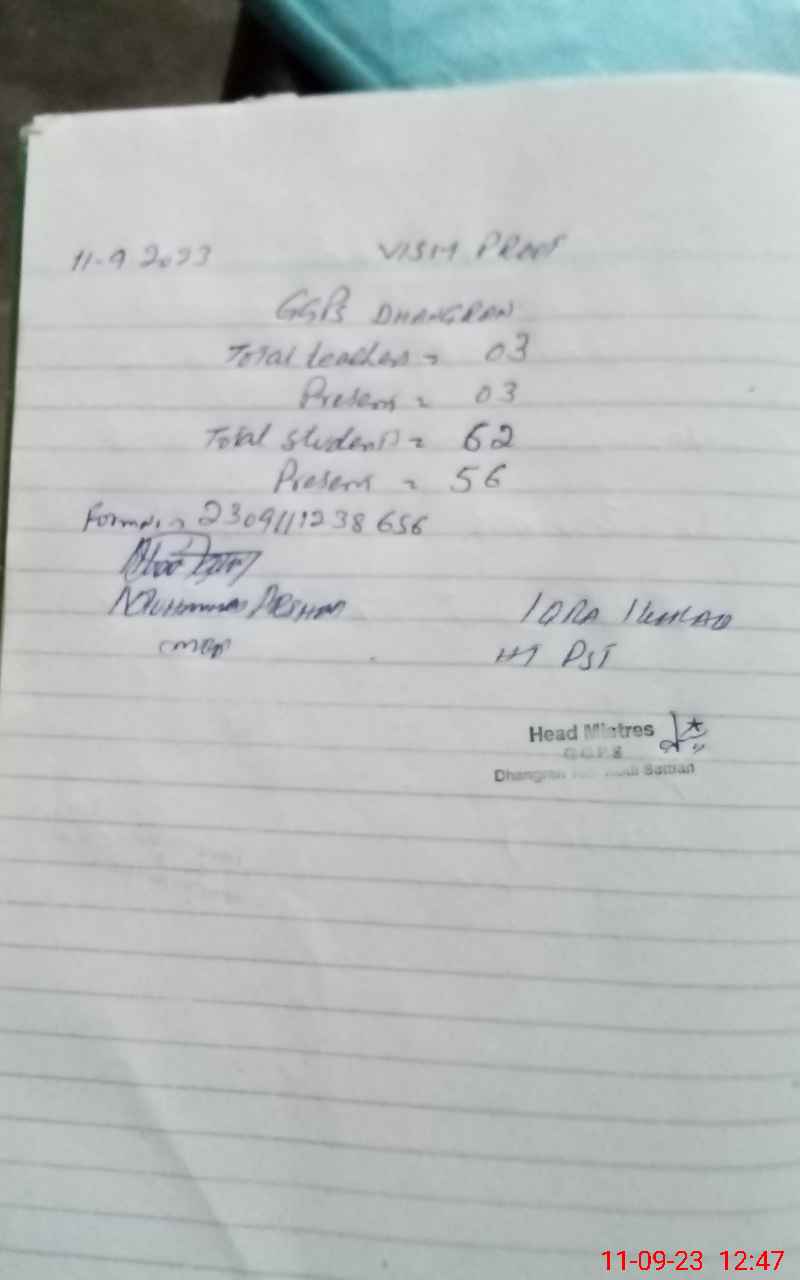 11-9 2023 VISIT PROOF
GGPS DHANGRAN
Total teachers = 03
Present = 03
Total students = 62
Present = 56
Form No. = 2309111238656
Muhammad Arshad
IQRA
HT PST
Head Mistres
G.G.P.S
Dhangran
11-09-23 12:47